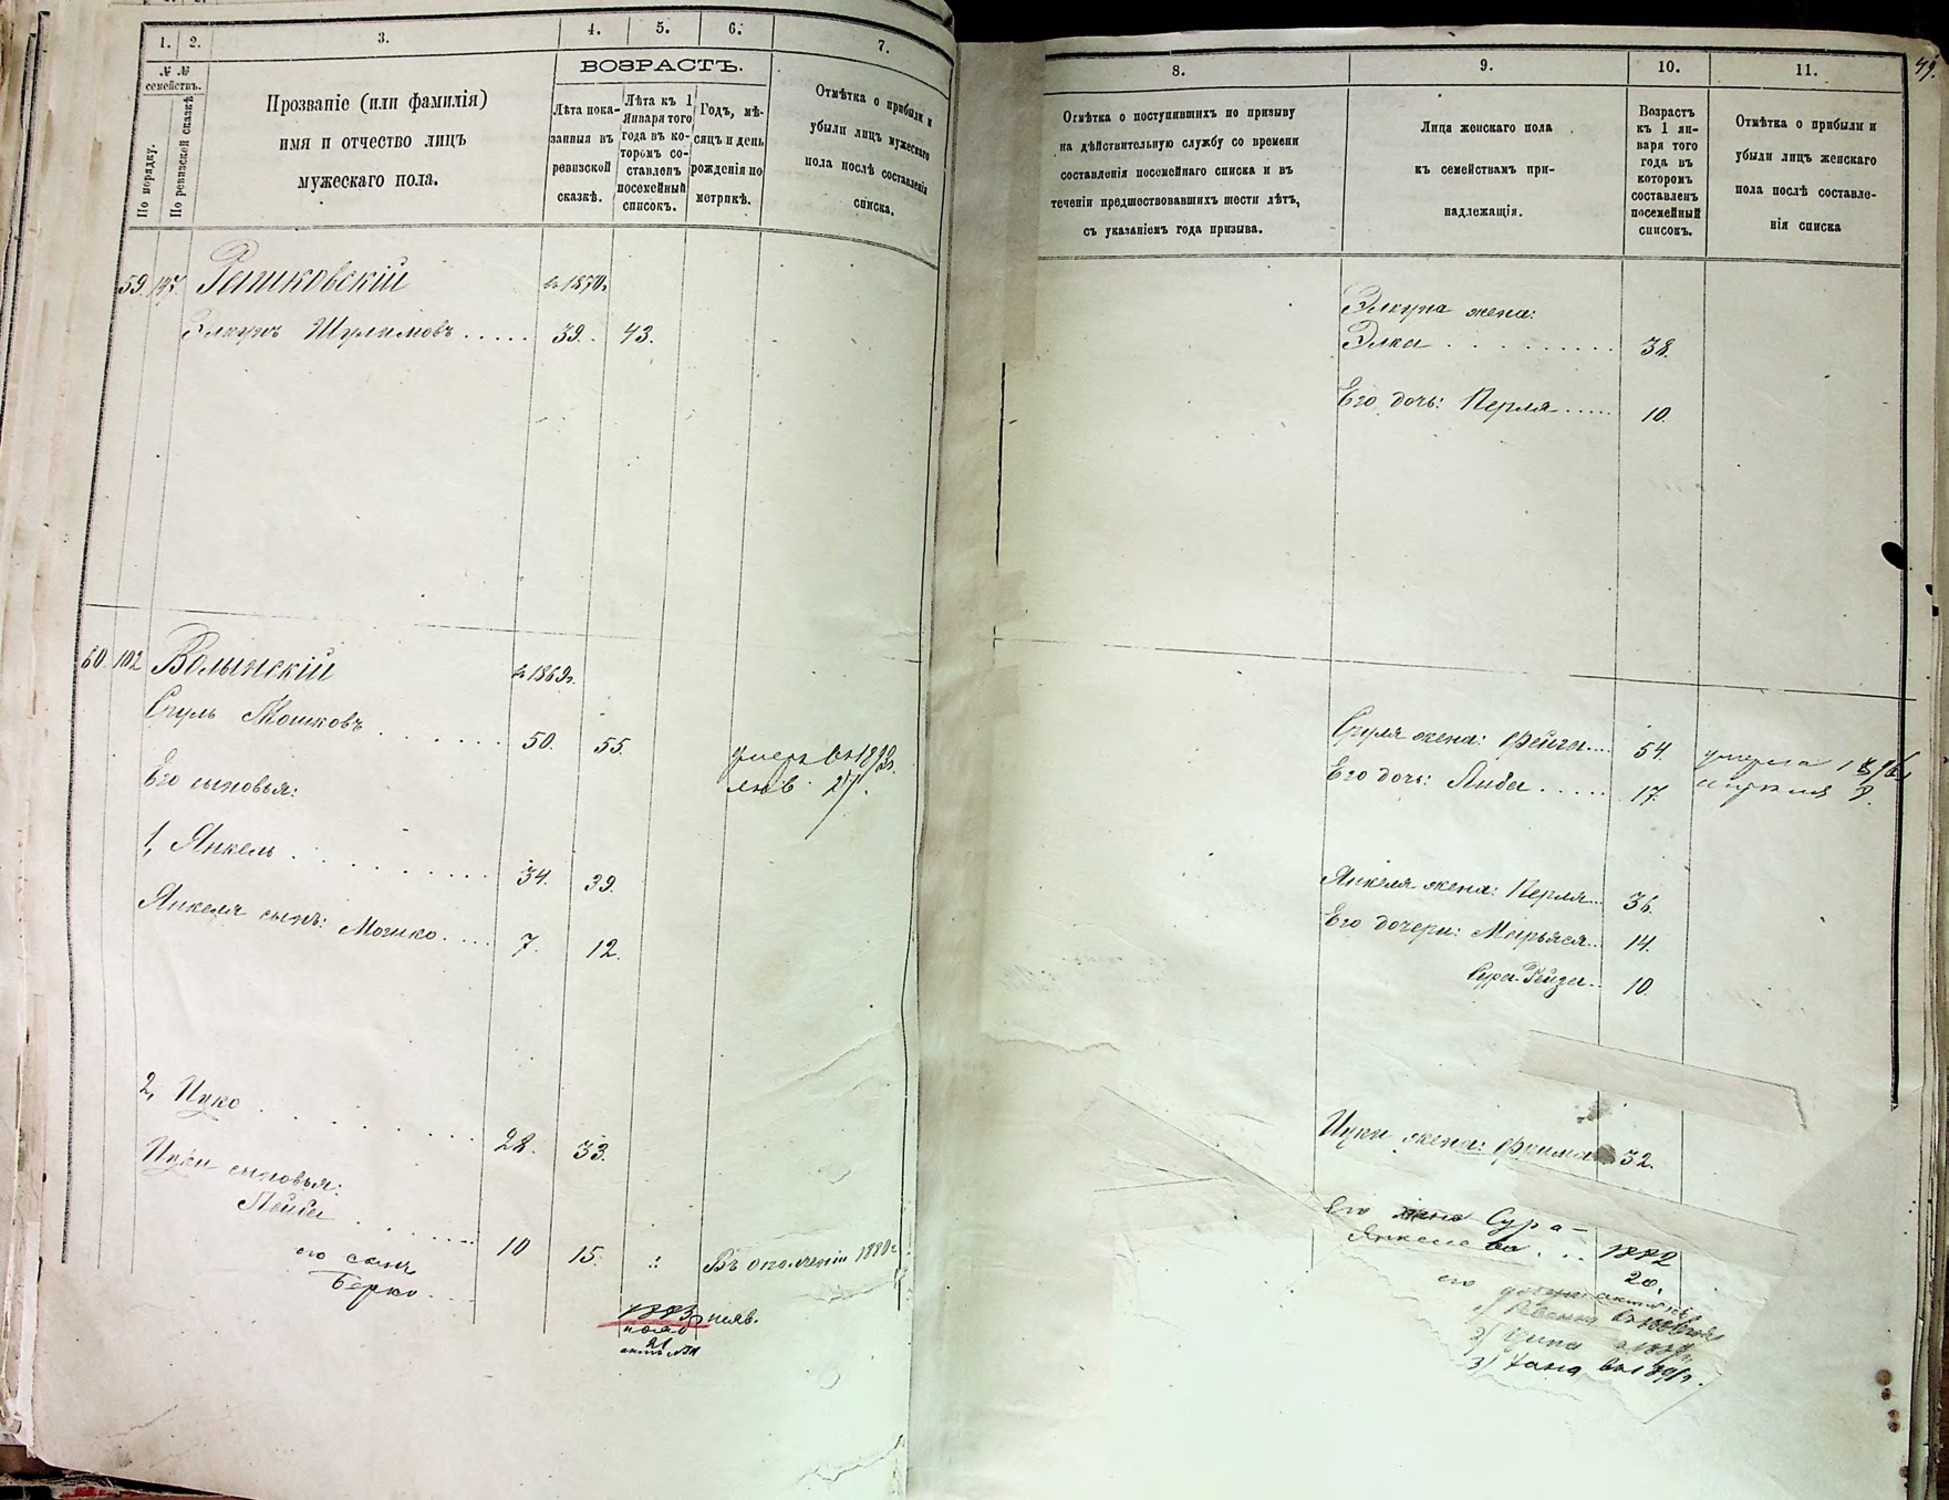 1. 2. 3. 4. 5. 6. 7.
№ №
семействъ.
По порядку.
По ревизской сказкѣ
Прозваніе (или фамилія)
имя и отчество лицъ
мужескаго пола.
ВОЗРАСТЪ.
Лѣта пока-
занныя въ
ревизской
сказкѣ.
Лѣта къ 1
Января того
года въ ко-
торомъ со-
ставленъ
посемейный
списокъ.
Годъ, мѣ-
сяцъ и день
рожденія по
метрикѣ.
Отмѣтка о прибыли и
убыли лицъ мужескаго
пола послѣ составленія
списка.
59. 197. Решковскій
Элкунъ Шулимовъ 39. 43.
60. 102 Волынскій в 1869г.
Сруль Мошковъ 50. 55.
умеръ
Его сыновья:
1, Янкель 34. 39.
Янкеля сынъ: Мошко 7. 12.
2, Ицко 28. 33.
Ицки сыновья:
Лейба 10 15. Въ ополченіи 1880г
его сынъ
Берко
1883 нояв.
8. 9. 10. 11.
49.
Отмѣтка о поступившихъ по призыву
на дѣйствительную службу со времени
составленія посемейнаго списка и въ
теченіи предшествовавшихъ шести лѣтъ,
съ указаніемъ года призыва.
Лица женскаго пола
къ семействамъ при-
надлежащія.
Возрастъ
къ 1 ян-
варя того
года въ
которомъ
составленъ
посемейный
списокъ.
Отмѣтка о прибыли и
убыли лицъ женскаго
пола послѣ составле-
нія списка
Элкуна жена:
Элка 38.
Его дочь: Перля 10.
Сруля жена: Фейга 54.
умерла
Его дочь: Либа 17.
Янкеля жена: Перля 36.
Его дочери: Мирьяся 14.
Сура-Рейза 10.
Ицки жена: Фрима 32.
Его жена Сура-
Янкелева 1882
20.
его дочери
1)
2) Ципа
3) Хана